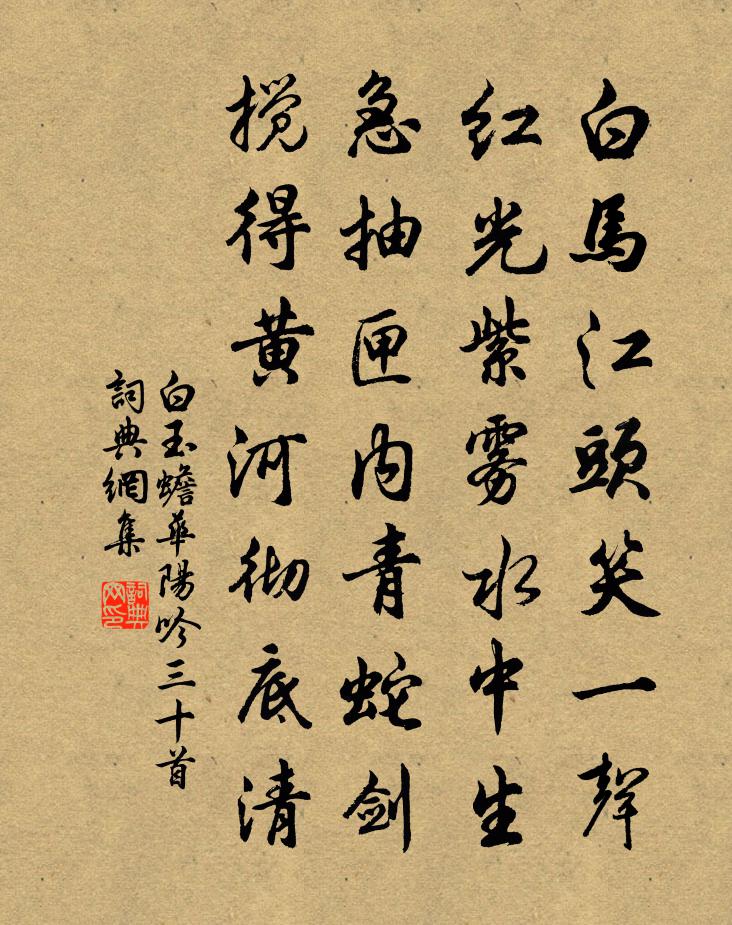 白馬江頭笑一聲
红光紫雾水中生
急抽匣内青蛇剑
搅得黄河彻底清
白玉蟾華陽吟三十首
詞典網集
詞典网印